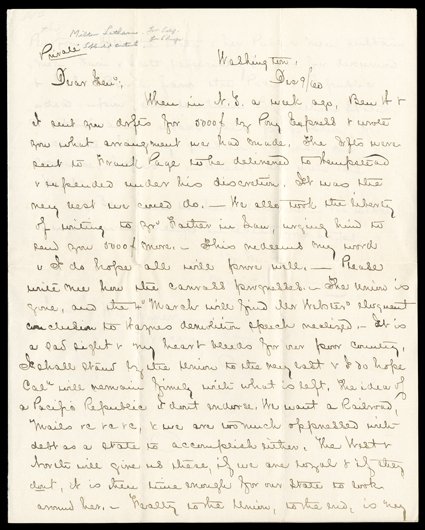 Milton Latham
Private
Washington,
Dec 9/60
Dear Genl,
When in N.Y. a week ago, Ben H &
I sent you drfts for 5000$ by Pony Express & wrote
you what arrangment we had made. The drfts were
sent to Frank Page to be delivered to Hempstead
& expended under his discretion. It was the
very best we could do. — We also took the liberty
of writing to yr Father in Law, urging him to
send you 5000$ more. — This redeems my word
& I do hope all will prove well. — Please
write me how the canvass progresses. — The Union is
gone, and the 4th March will find Mr Websters eloquent
conclusion to Haynes demolition speech realized. — It is
a sad sight & my heart bleeds for our poor country,
I shall stand by the Union to the very last & I do hope
Cala will remain firmly with what is left. The idea of
a Pacific Republic I dont endorse. We want a Railroad,
Mails &c &c &c, & we are too much oppressed with
debt as a State to accomplish either. The West &
North will give us these, if we are loyal & if they
dont, it is then time enough for our State to look
around her. — Fealty to the Union, to the end, is my